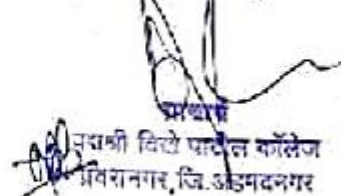 प्राचार्य
पद्मश्री विखे पाटील कॉलेज
प्रवरानगर, जि.अहमदनगर